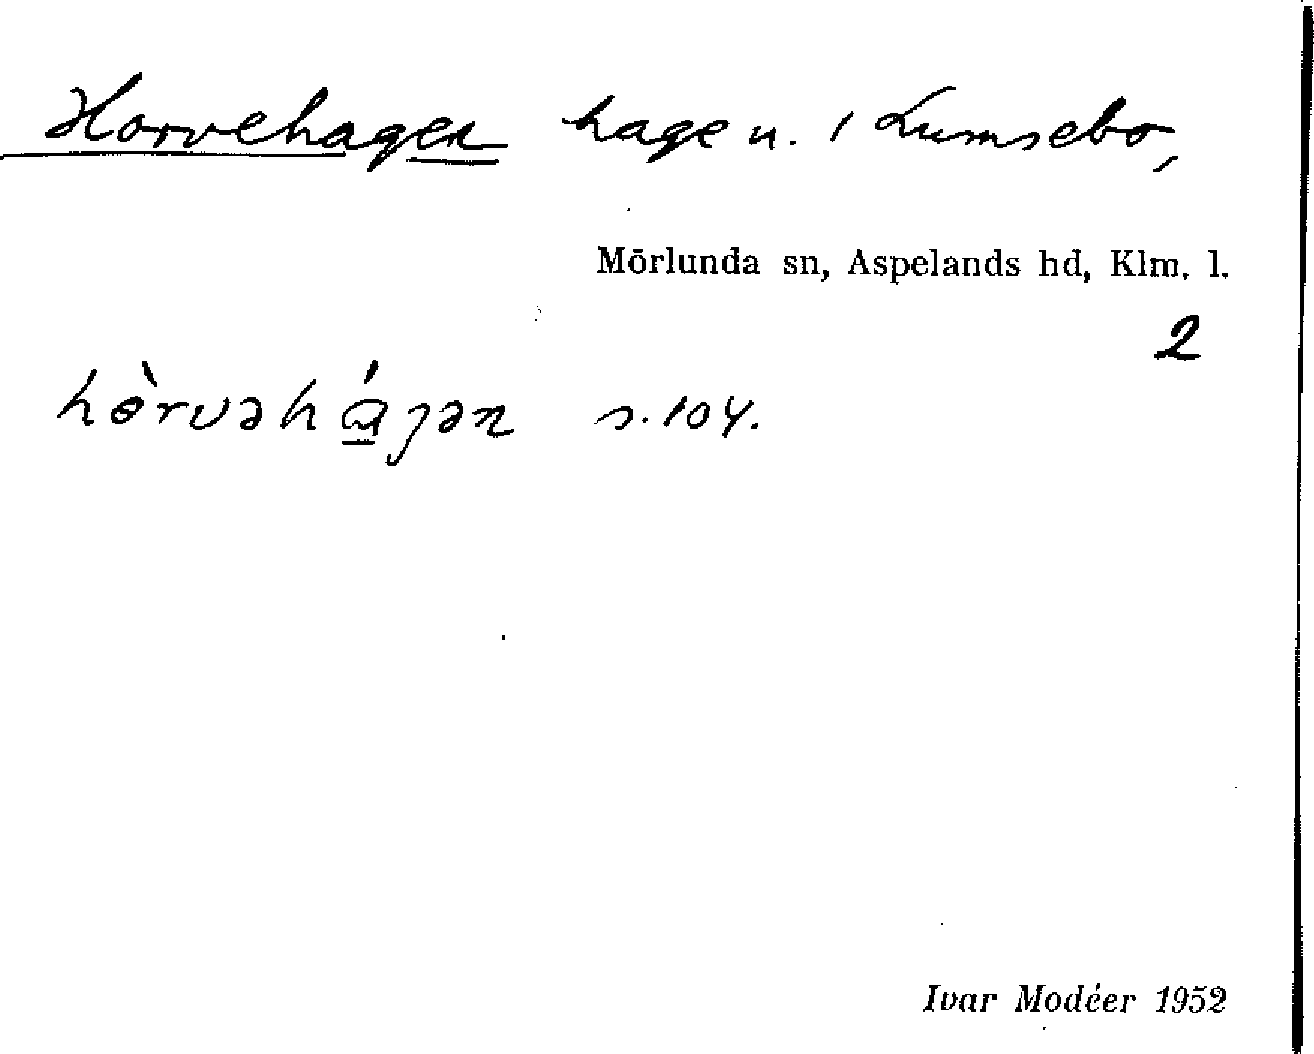 Horvehagen hage u. / Lumsebo,
Mörlunda sn, Aspelands hd, Klm. l.
2
hɵ̀rvəhɑ́gən s. 104.
Ivar Modéer 1952